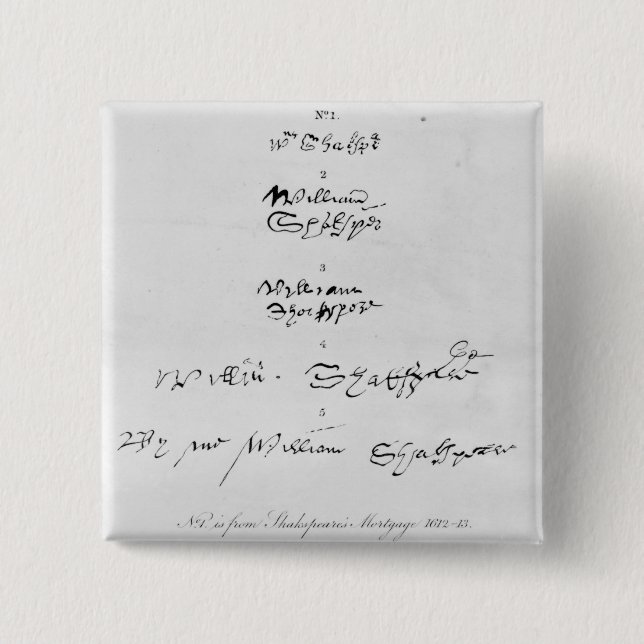 No. 1.
Wm Shakspẽ
2
William
Shakspeř
3
William
Shakspere
4
Willm. Shakspere
5
By me William Shakspeare
No. 1. is from Shakspeare's Mortgage 1612-13.